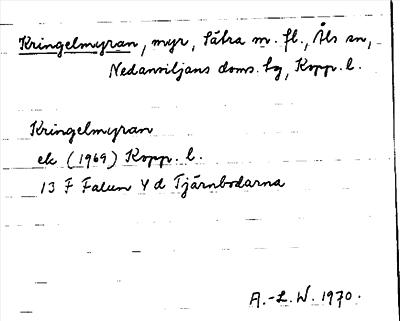 Kringelmyran, myr, Sätra m. fl., Åls sn,
Nedansiljans doms. tg, Kopp. l.
Kringelmyran
ek (1969) Kopp. l.
13 F Falun Y d Tjärnbodarna
A.-L. W. 1970.